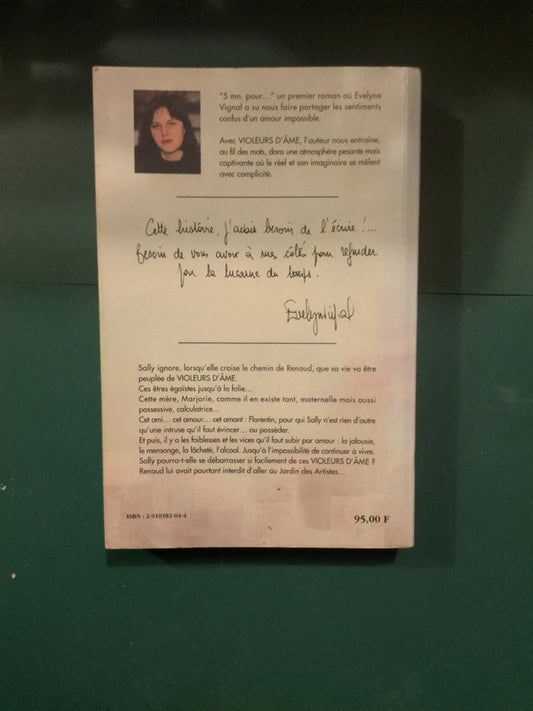 "5 mn. pour..." un premier roman où Evelyne
Vignal a su nous faire partager les sentiments
confus d'un amour impossible.
Avec VIOLEURS D'ÂME, l'auteur nous entraîne,
au fil des mots, dans une atmosphère pesante mais
captivante où le réel et son imaginaire se mêlent
avec complicité.
Cette histoire, j'avais besoin de l'écrire !...
Besoin de vous avoir à mes côtés pour regarder
par la lucarne du temps.
Sally ignore, lorsqu'elle croise le chemin de Renaud, que sa vie va être
peuplée de VIOLEURS D'ÂME.
Ces êtres égoïstes jusqu'à la folie...
Cette mère, Marjorie, comme il en existe tant, maternelle mais aussi
possessive, calculatrice...
Cet ami... cet amour... cet amant : Florentin, pour qui Sally n'est rien d'autre
qu'une intruse qu'il faut évincer... ou posséder.
Et puis, il y a les faiblesses et les vices qu'il faut subir par amour : la jalousie,
le mensonge, la lâcheté, l'alcool. Jusqu'à l'impossibilité de continuer à vivre.
Sally pourra-t-elle se débarrasser si facilement de ces VIOLEURS D'ÂME ?
Renaud lui avait pourtant interdit d'aller au Jardin des Artistes...
ISBN : 2-910382-04-4
95,00 F